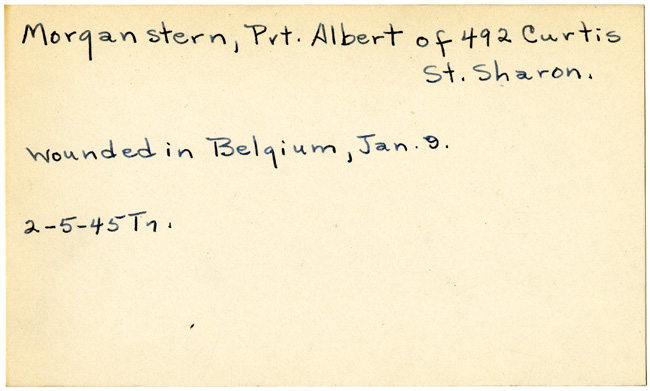 Morganstern, Pvt. Albert of 492 Curtis
St. Sharon.
Wounded in Belgium, Jan. 9.
2-5-45 Tr.